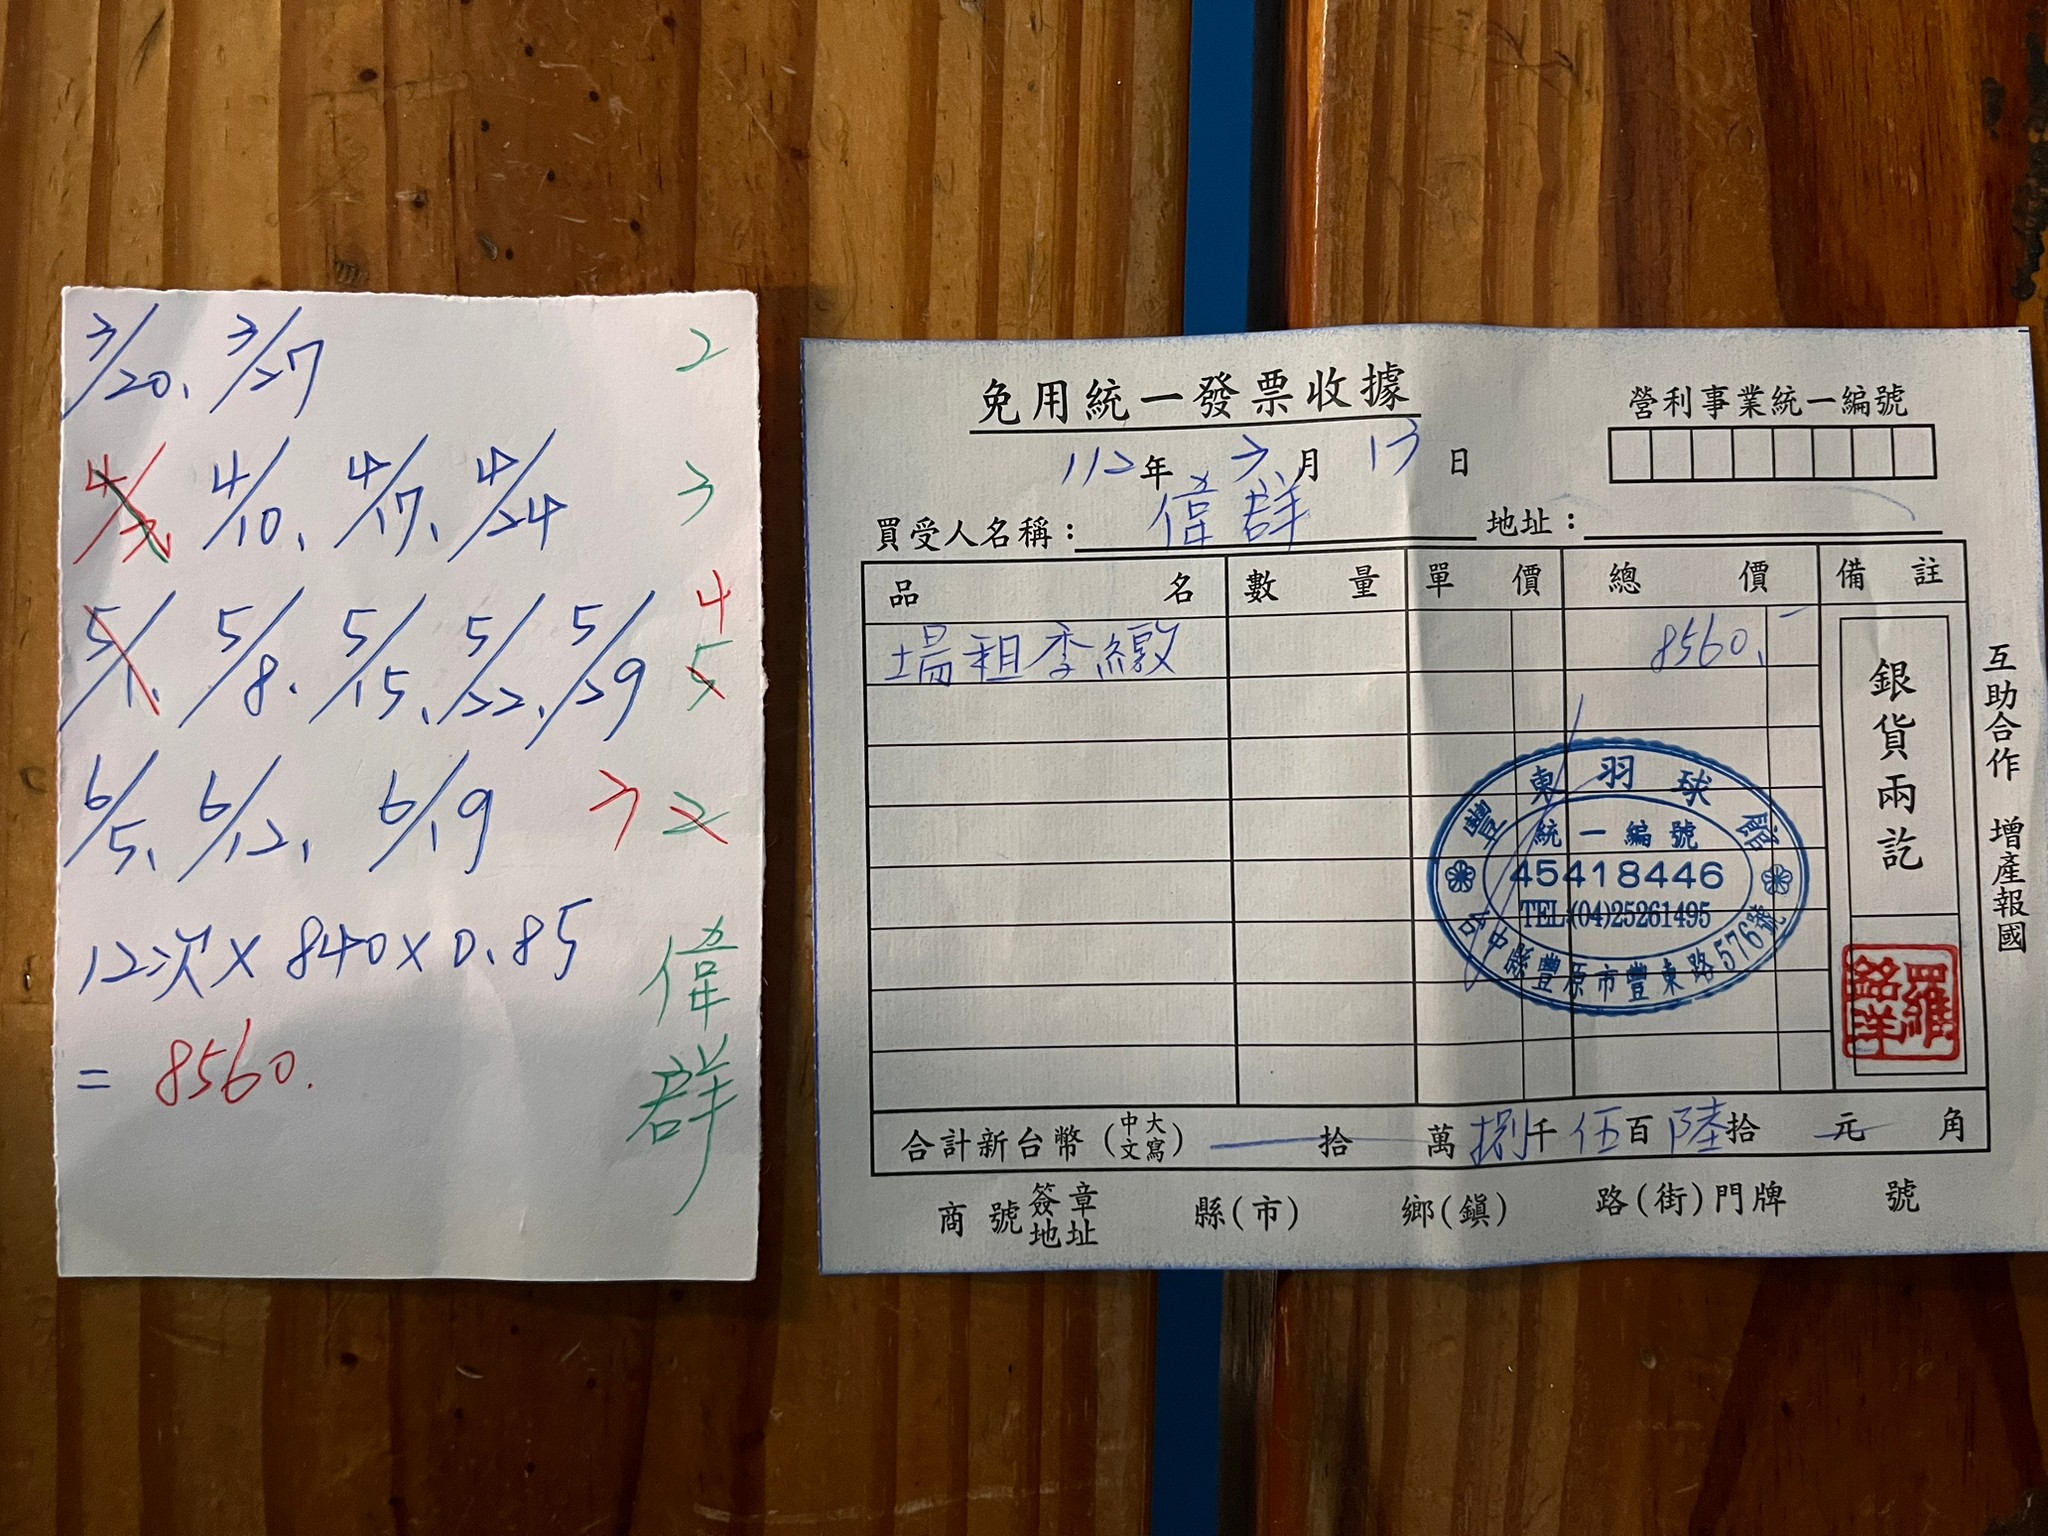 3/20、3/27 2
4/3、4/10、4/17、4/24 3
5/1、5/8、5/15、5/22、5/29 4 5
6/5、6/12、6/19 3 2
12次×840×0.85
= 8560.
偉群
免用統一發票收據
營利事業統一編號
112年 3月 13日
買受人名稱：偉群 地址：
品名 數量 單價 總價 備註
場租季繳 8560.-
銀貨兩訖
互助合作 增產報國
豐東羽球館
統一編號
45418446
TEL:(04)25261495
台中縣豐原市豐東路576號
羅銘洋
合計新台幣(中文大寫) 拾 萬 捌千 伍百 陸拾 元 角
商號簽章地址 縣(市) 鄉(鎮) 路(街)門牌 號